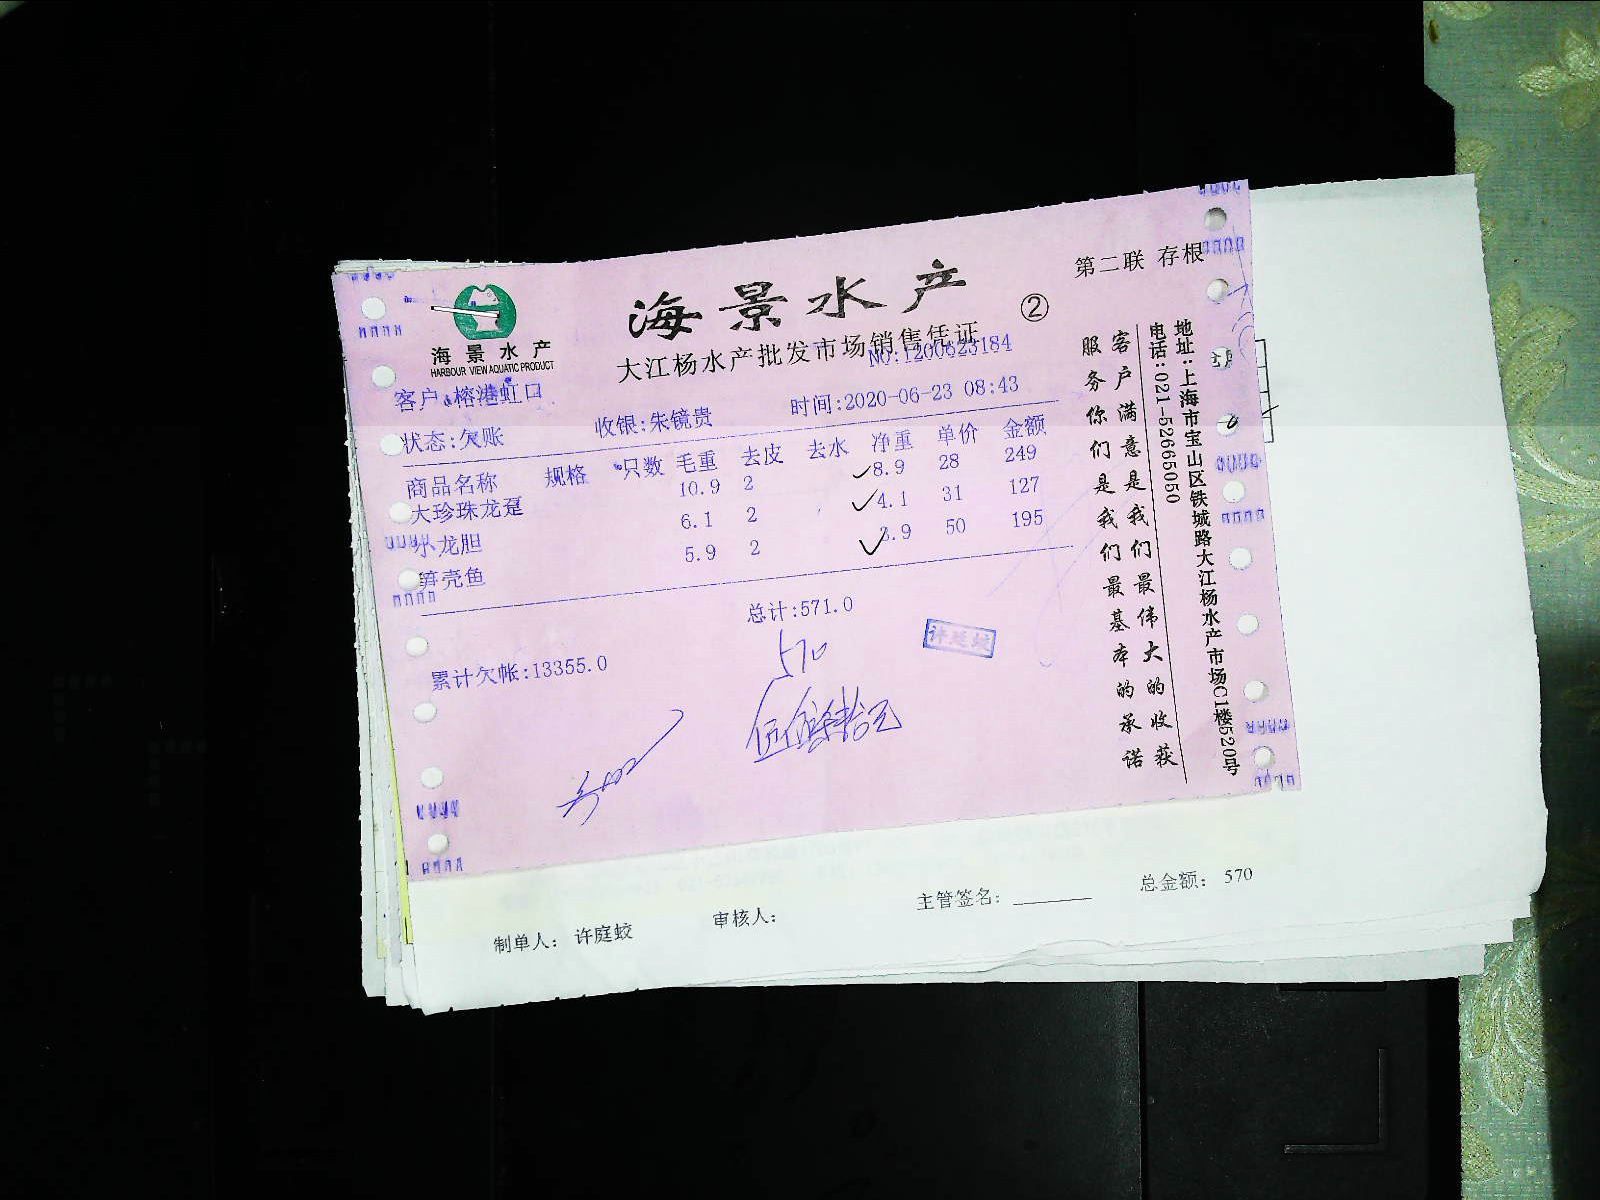 第二联 存根
海景水产
②
海景水产
HARBOUR VIEW AQUATIC PRODUCT
大江杨水产批发市场销售凭证
NO:1200623184
客户:榕港虹口
状态:欠账 收银:朱镜贵 时间:2020-06-23 08:43
商品名称 规格 只数 毛重 去皮 去水 净重 单价 金额
大珍珠龙趸 10.9 2 8.9 28 249
小龙胆 6.1 2 4.1 31 127
笋壳鱼 5.9 2 3.9 50 195
总计:571.0
累计欠帐:13355.0
570
许庭蛟
客户满意是我们最伟大的收获
服务你们是我们最基本的承诺
地址:上海市宝山区铁城路大江杨水产市场C1楼520号
电话:021-52665050
制单人: 许庭蛟 审核人: 主管签名: 总金额: 570